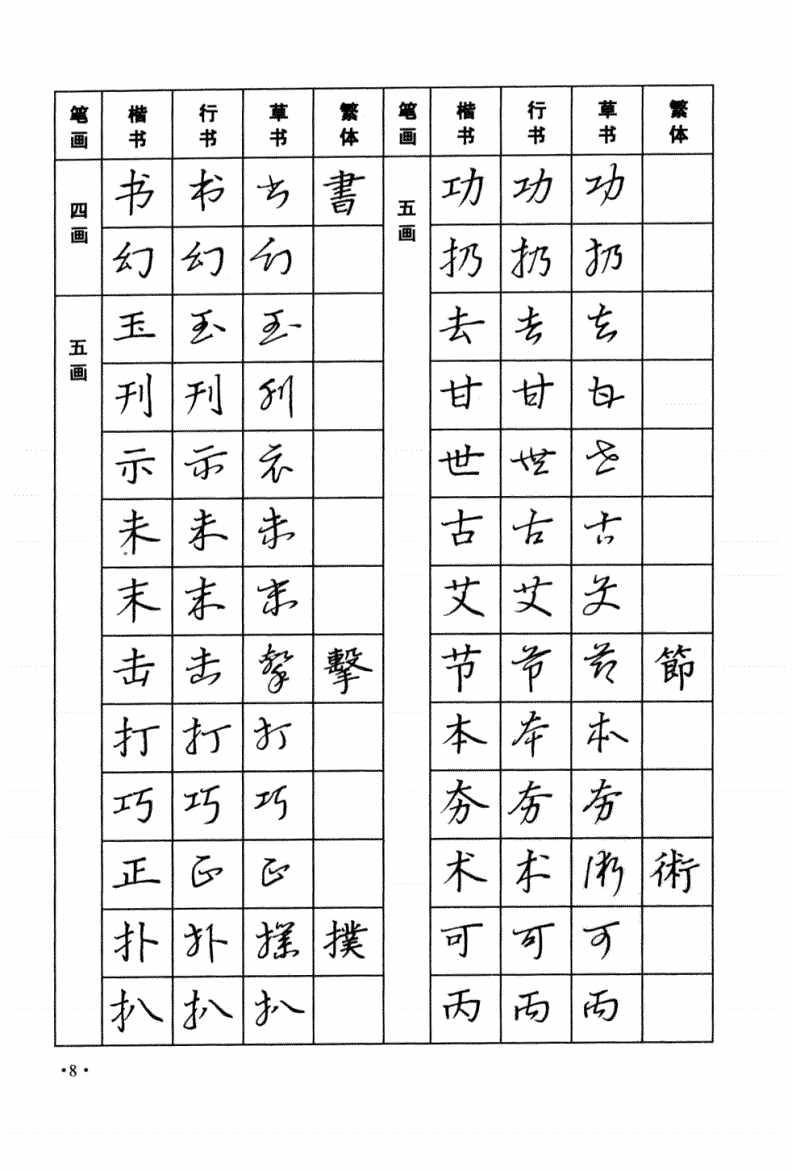 笔画 楷书 行书 草书 繁体 笔画 楷书 行书 草书 繁体
四画 书 书 书 書 五画 功 功 功
幻 幻 幻 扔 扔 扔
五画 玉 玉 玉 去 去 去
刊 刊 刊 甘 甘 甘
示 示 示 世 世 世
未 未 未 古 古 古
末 末 末 艾 艾 艾
击 击 擊 擊 节 节 节 節
打 打 打 本 本 本
巧 巧 巧 夯 夯 夯
正 正 正 术 术 術 術
扑 扑 撲 撲 可 可 可
扒 扒 扒 丙 丙 丙
·8·